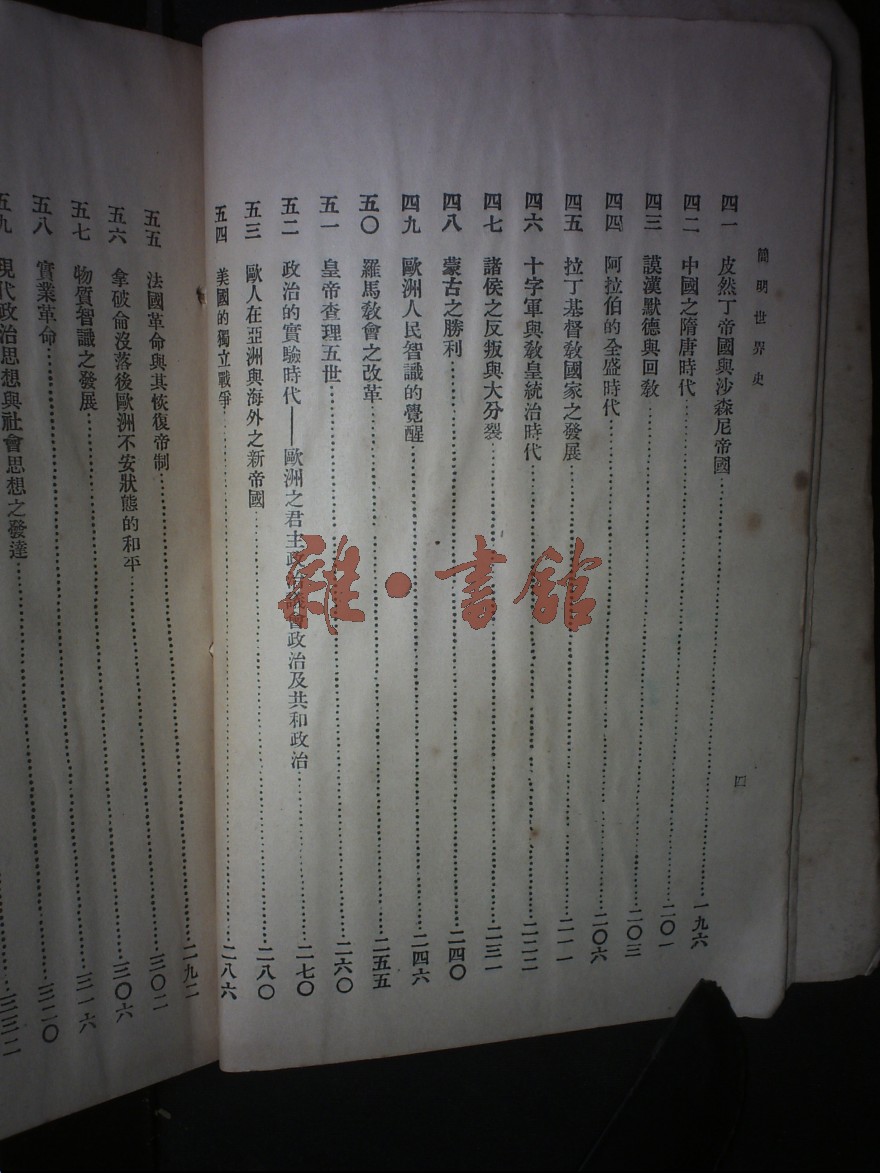 簡明世界史 四
四一 皮然丁帝國與沙森尼帝國 一九六
四二 中國之隋唐時代 二〇一
四三 謨漢默德與回敎 二〇三
四四 阿拉伯的全盛時代 二〇六
四五 拉丁基督敎國家之發展 二一一
四六 十字軍與敎皇統治時代 二二二
四七 諸侯之反叛與大分裂 二三一
四八 蒙古之勝利 二四〇
四九 歐洲人民智識的覺醒 二四六
五〇 羅馬敎會之改革 二五五
五一 皇帝查理五世 二六〇
五二 政治的實驗時代——歐洲之君主政治議會政治及共和政治 二七〇
五三 歐人在亞洲與海外之新帝國 二八〇
五四 美國的獨立戰爭 二八六
五五 法國革命與其恢復帝制 二九二
五六 拿破侖沒落後歐洲不安狀態的和平 三〇二
五七 物質智識之發展 三〇六
五八 實業革命 三一六
五九 現代政治思想與社會思想之發達 三二〇
三三二
雜·書館